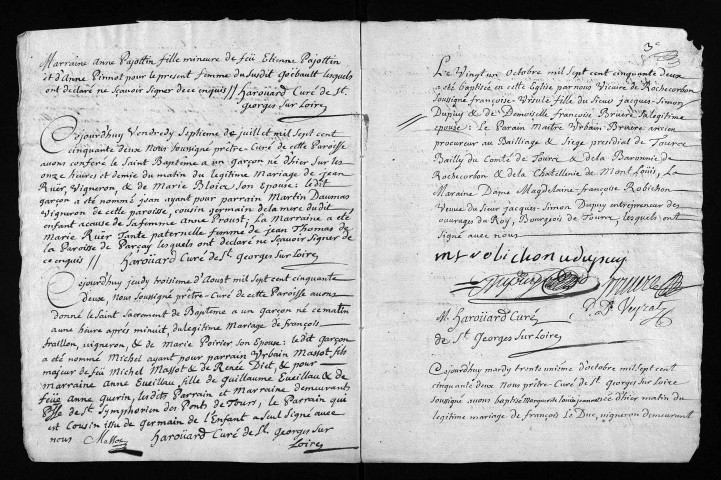 Marraine Anne Pajottin fille mineure de feü Etienne Pajottin
et d'Anne Pinnot pour le present femme du susdit Goebault lesquels
ont declaré ne sçavoir signer de ce enquis // Harouard Curé de St.
Georges sur Loire
Cejourdhuy Vendredy Septieme de juillet mil sept cent
cinquante deux Nous Soussigné prètre-Curé de cette Paroisse
avons conferé le Saint Baptême a un garçon né d'hier sur les
onze heures et demie du matin du legitime Mariage de jean
Ruèr, Vigneron, & de Marie Bloice son Epouse: le dit
garçon a été nommé jean ayant pour parrain Martin Daumas
Vigneron de cette paroisse, cousin germain de la mere du dit
enfant acause de sa femme Anne Proust, La Marraine a été
Marie Ruèr Tante paternelle femme de jean Thomas de
la Paroisse de Parçay lesquels ont declaré ne Sçavoir Signer de
ce enquis // Haroüard Curé de St Georges sur Loire
Cejourdhuy jeudy troisieme d'Aoust mil sept cent cinquante
deux, Nous Sousigné prètre-Curé de cette Paroisse avons
donné le Saint Sacrement de Baptême a un garçon né ce matin
a une heure après minuit, du legitime Mariage de françois
fraillon, vigneron, & de Marie Poirier son Epouse: le dit garçon
a été nommé Michel ayant pour parrain Urbain Massot fils
majeur de feü Michel Massot & de Renée Diet, & pour
marraine Anne Eveillau fille de Guillaume Eveillau & de
feüe Anne Guerin, lesdits Parrain et Marraine demeurants
Psse de St. Symphorien des Ponts de Tours, le Parrain qui
est Cousin issu de Germain de l'Enfant a Seul Signé avec
nous Massot Haroüard Curé de St. Georges sur
Loire
3e
Le Vingt un octobre mil Sept cent cinquante deux
a été baptisée en cette Eglise par nous Vicaire de Rochecorbon
Soussigné françoise-Ursule fille du Sieur jacques-Simon
Dupuy & de Demoiselle françoise Bruère sa legitime
epouse: Le Parain Maitre Urbain Bruère ancien
procureur au Bailliage & Siege presidial de Tours
Bailly du Comté de Tours & de la Baronnie de
Rochecorbon & de la Chatellenie de Mont Loüis, La
Maraine Dame Magdelaine-françoise Robichon
Veuve du Sieur jacques-Simon Dupuy entrepreneur des
ouvrages du Roy, Bourgeois de Tours, lesquels ont
Signé avec nous
mf robichon v dupuy
Dupuy Bruere
M. Haroüard Curé
de St Georges sur Loire
Cejourdhuy mardy trente unième d'octobre mil Sept cent
cinquante deux Nous prètre-Curé de St Georges sur Loire
soussigné avons baptisé née d'hier matin du
legitime mariage de françois Le Duc, vigneron demeurant